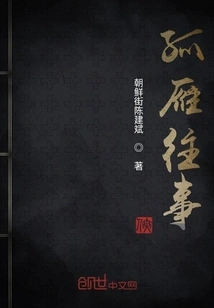 孤雁往事
朝鲜街陈建斌◎著
创世中文网